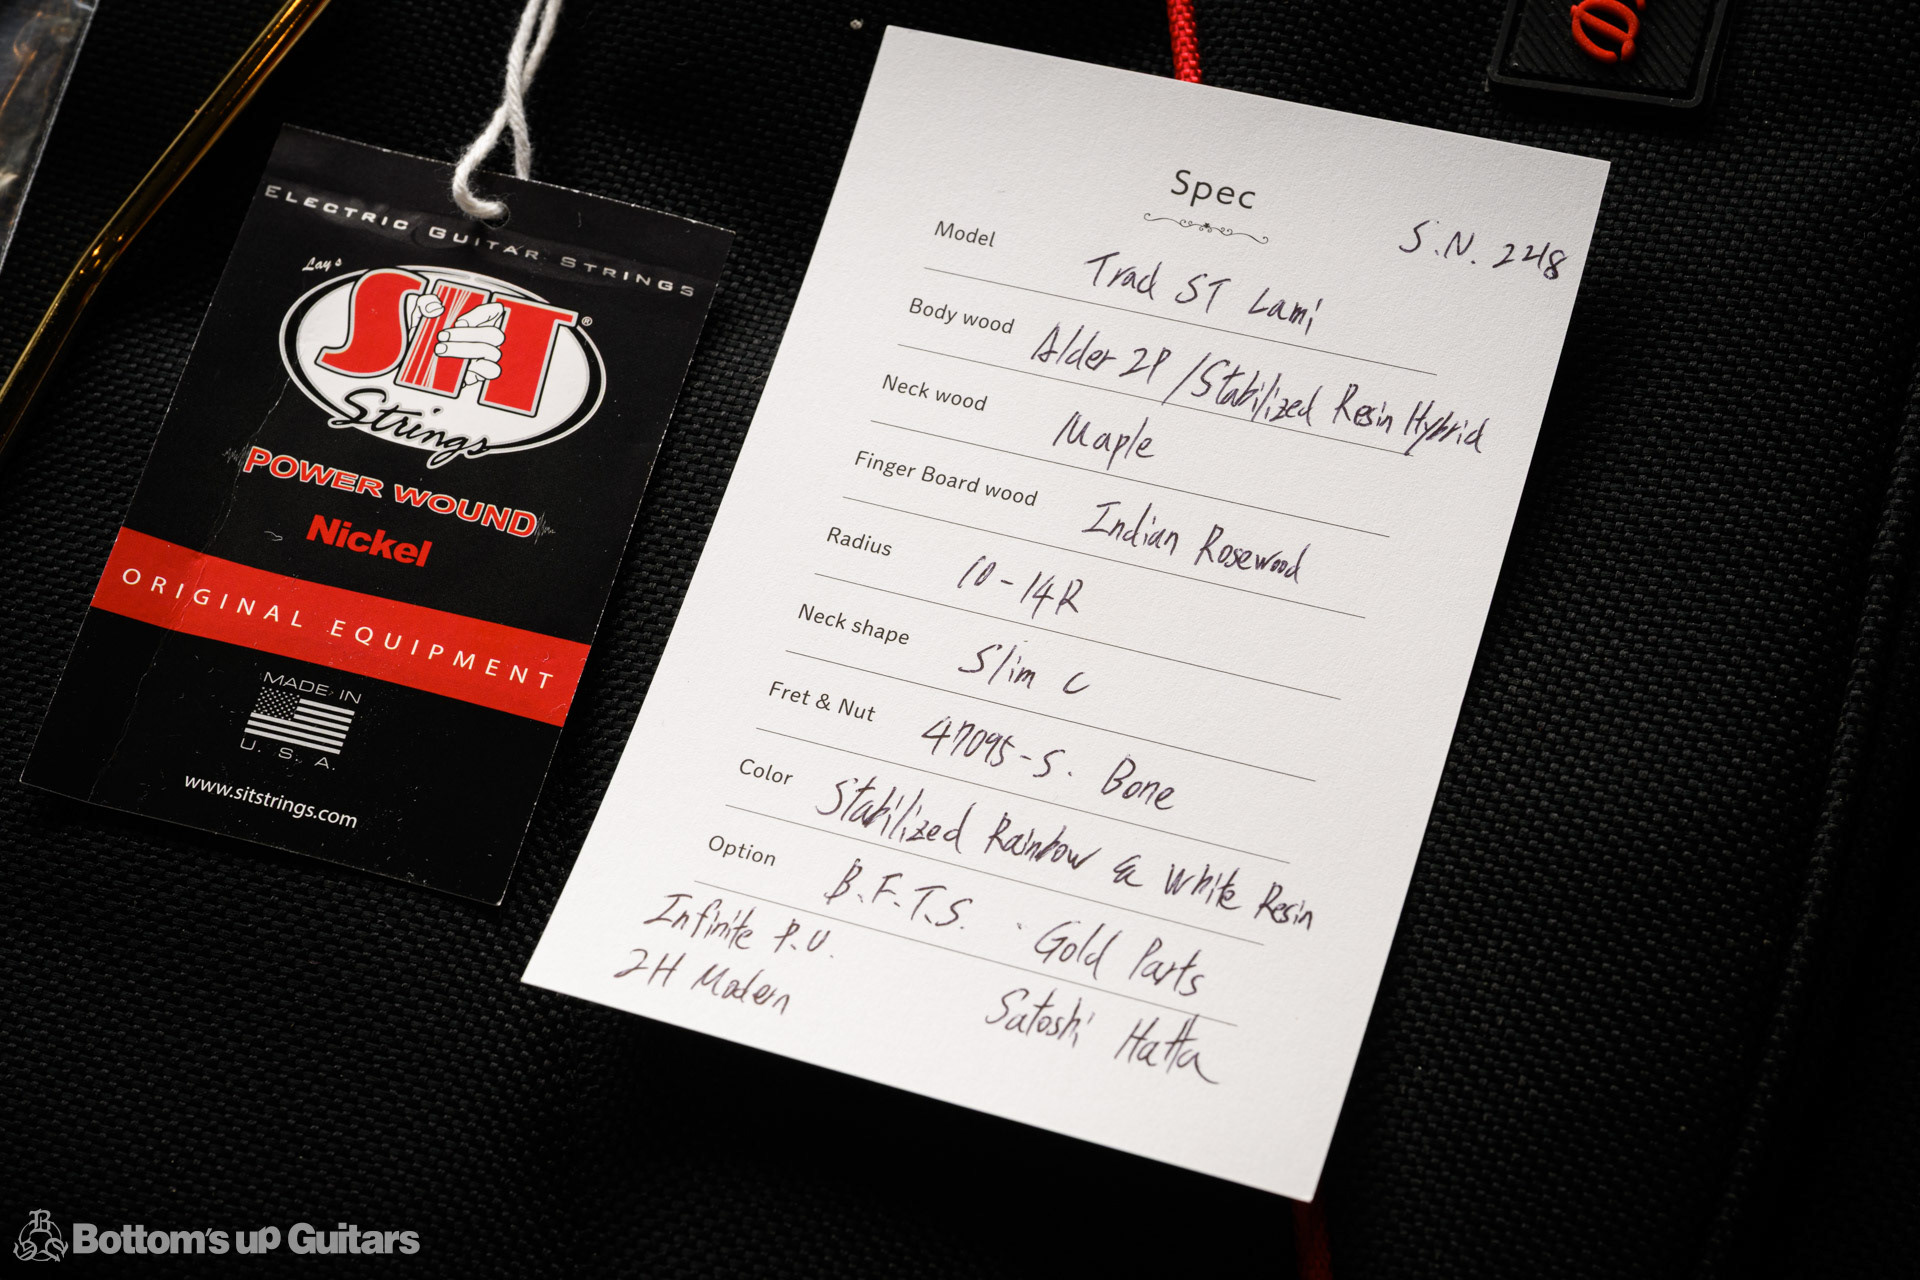 ELECTRIC GUITAR STRINGS
Lay's
SIT®
Strings
POWER WOUND
Nickel
ORIGINAL EQUIPMENT
MADE IN
U. S. A.
www.sitstrings.com
Spec
S.N. 248
Model Trad ST Lami
Body wood Alder 2P / Stabilized Resin Hybrid
Neck wood Maple
Finger Board wood Indian Rosewood
Radius 10-14R
Neck shape Slim C
Fret & Nut 47095-S. Bone
Color Stabilized Rainbow & White Resin
Option B.F.T.S. · Gold Parts
Infinite P.U.
2H Modern
Satoshi Hatta
Bottom's up Guitars